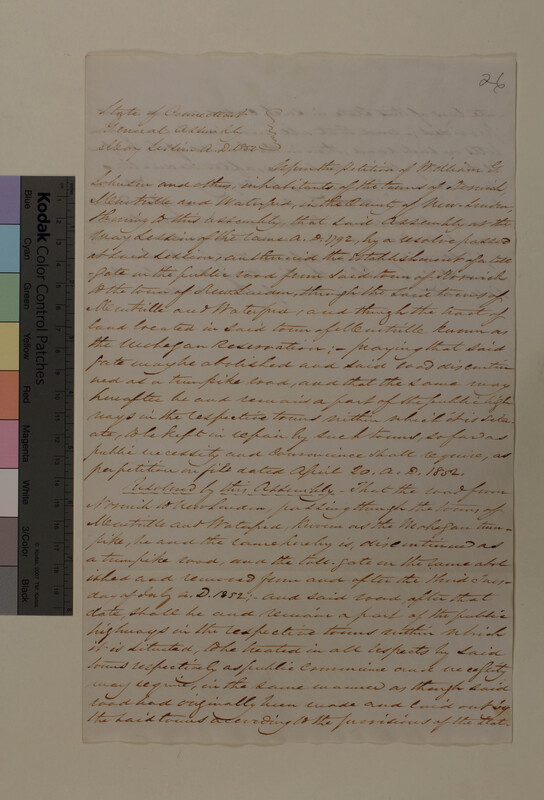 26
State of Connecticut
General Assembly
May Session A.D. 1852
Upon the Petition of William G.
Johnson and others, inhabitants of the towns of Norwich
Montville and Waterford, in the County of New London,
shewing to this Assembly, that said Assembly at the
May Session of the same A.D. 1792, by a resolve passed
at said Session, authorised the establishment of a toll
-gate on the public road from said town of Norwich
to the town of New London, through the said towns of
Montville and Waterford, and through the tract of
land located in said town of Montville known as
the Mohegan Reservation; - praying that said
gate may be abolished and said road discontin
ued as a turnpike road, and that the same may
hereafter be and remain a part of the public high
ways in the respective towns within which it is situ-
ate, to be kept in repair by such towns, so far as
public necessity and convenience shall require, as
per petition on file dated April 20. A.D. 1852.
Resolved by this Assembly - That the road from
Norwich to New London, passing through the towns of
Montville and Waterford, known as the Mohegan turn-
pike, be and the same hereby is, discontinued as
a turnpike road, and the toll-gate on the same abol
ished and removed from and after the third Tues-
day of July A.D. 1852; - and said road after that
date, shall be and remain a part of the public
highways in the respective towns within which
it is situated, to be treated in all respects by said
towns respectively as public convenience and necessity
may require, in the same manner as though said
road had originally been made and laid out by
the said towns according to the provisions of the Stat-
Kodak Color Control Patches
Blue
Cyan
Green
Yellow
Red
Magenta
White
3/Color
Black